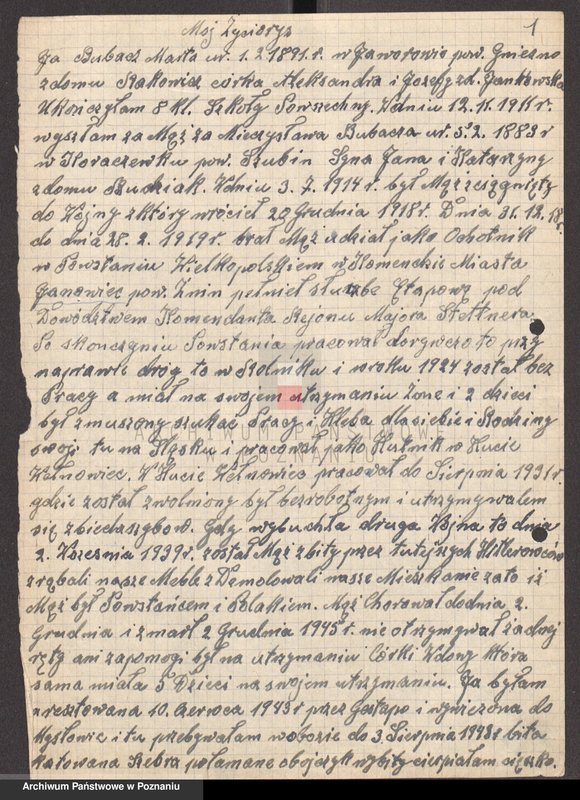 Moj Życiorys
1
Ja Bubacz Marta ur. 1.2.1891.r. w Jaworowie pow. Gniezno
zdomu Rakowicz córka Aleksandra i Józefy zd. Jankowska
Ukończyłam 8 kl. Szkoły Powszechny. Wdniu 12.11.1911r.
wyszłam za Mąż za Mieczysława Bubacza ur. 5.2. 1883r
w Horaczewku pow. Szubin Syna Jana i Katarzyny
zdomu Budziak. Wdniu 3. 7. 1914r. był Mąż zesiągnięty
do Wojny zktóry wrócieł 20 Grudnia 1918r. Dnia 31. 12. 18r.
do dnia 28. 2. 1919r. brał Mąż udział jako Ochotnik
w Powstaniu Wielkopolskiem w Komendzie Miasta
Janowiec pow. Żnin pełnieł służbe Etapową pod
Dowództwem Komendanta Rejonu Majora Stettnera.
Po skończyniu Powstania pracował dorywczo to przy
naprawie dróg to w Rolniku i wroku 1924 został bez
Pracy a miał na swojem utrzymaniu Żone i 2 dzieci
był zmuszony szukać Pracy i Chleba dlasiebie i Rodziny
swoji tu na Śląsku i pracował jako Hutnik w Hucie
Wełnowiec. W Hucie Wełnowiec pracował do Sierpnia 1931r.
gdzie został zwolniony był bezrobotnym i utrzymywalem
się zbiedaszybow. Gdy wybuchła druga Wojna to dnia
2. Września 1939r. został Mąż zbity przez tutejszych Hitlerowców
zrąbali nasze Meble zDemolowali nasze Mieszkanie zato iż
Mąż był Powstańcem i Polakiem. Mąż Chorował dodnia 2.
Grudnia i zmarł 2 Grudnia 1945r. nie otrzymywał żadnej
ręty ani zapomogi był na utrzymaniu Córki Wdowy która
sama miała 5 Dzieci na swojem utrzymaniu. Ja byłam
aresztowana 10. Czerwca 1943r przez Gestapo i wywieziona do
Mysłowic i tu przebywałam wobozie do 3. Sierpnia 1943r bita
Katowana Żebra połamane obojczyk wybity cierpiałam ciężko.
ARCHIWUM PAŃSTWOWE
W POZNANIU
Archiwum Państwowe w Poznaniu